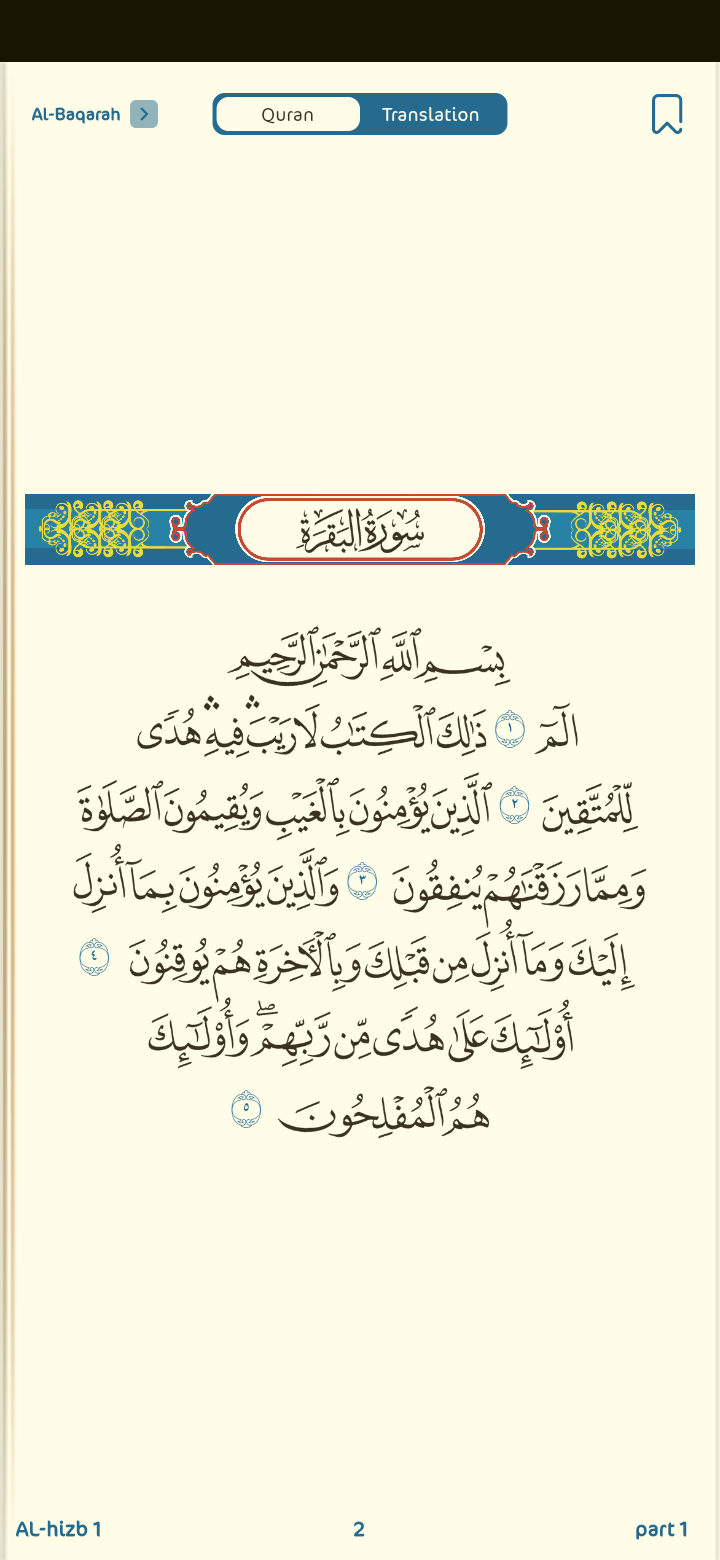 Al-Baqarah
Quran
Translation
سُورَةُ البَقَرَةِ
بِسۡمِ ٱللَّهِ ٱلرَّحۡمَٰنِ ٱلرَّحِيمِ
الٓمٓ ١ ذَٰلِكَ ٱلۡكِتَٰبُ لَا رَيۡبَۛ فِيهِۛ هُدٗى
لِّلۡمُتَّقِينَ ٢ ٱلَّذِينَ يُؤۡمِنُونَ بِٱلۡغَيۡبِ وَيُقِيمُونَ ٱلصَّلَوٰةَ
وَمِمَّا رَزَقۡنَٰهُمۡ يُنفِقُونَ ٣ وَٱلَّذِينَ يُؤۡمِنُونَ بِمَآ أُنزِلَ
إِلَيۡكَ وَمَآ أُنزِلَ مِن قَبۡلِكَ وَبِٱلۡأٓخِرَةِ هُمۡ يُوقِنُونَ ٤
أُوْلَٰٓئِكَ عَلَىٰ هُدٗى مِّن رَّبِّهِمۡۖ وَأُوْلَٰٓئِكَ
هُمُ ٱلۡمُفۡلِحُونَ ٥
AL-hizb 1
2
part 1